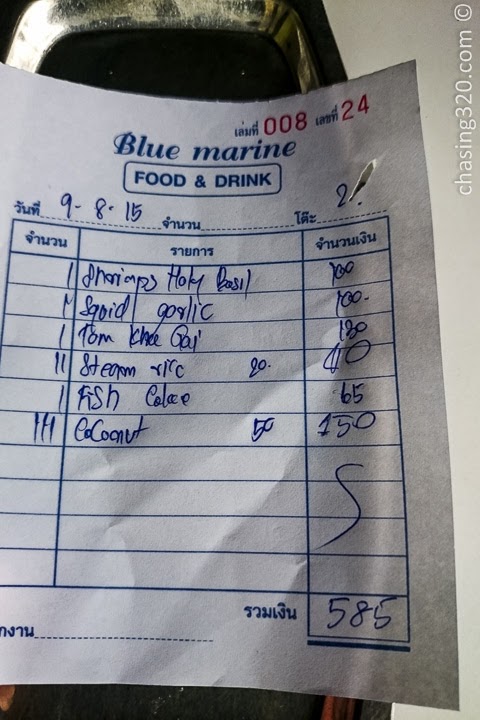 chasing320.com ©
เล่มที่ 008 เลขที่ 24
Blue marine
FOOD & DRINK
วันที่ 9-8-15 จำนวน โต๊ะ 2
จำนวน รายการ จำนวนเงิน
I Shrimps Holy Basil 100
I Squid garlic 100.
I Tom Khaa Gai 130
II Steam rice 20. 40
I Fish Cake 65
III Coconut 50 150
รวมเงิน 585
กงาน